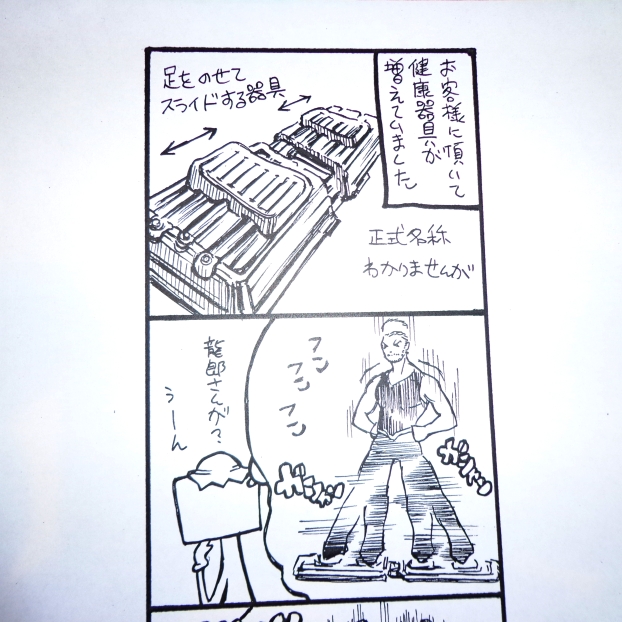 お客様に頂いて
健康器具が
増えていました
足をのせて
スライドする器具
正式名称
わかりませんが
フン
フン
フン
ガシャン
ガシャン
龍郎さんが?
うーん